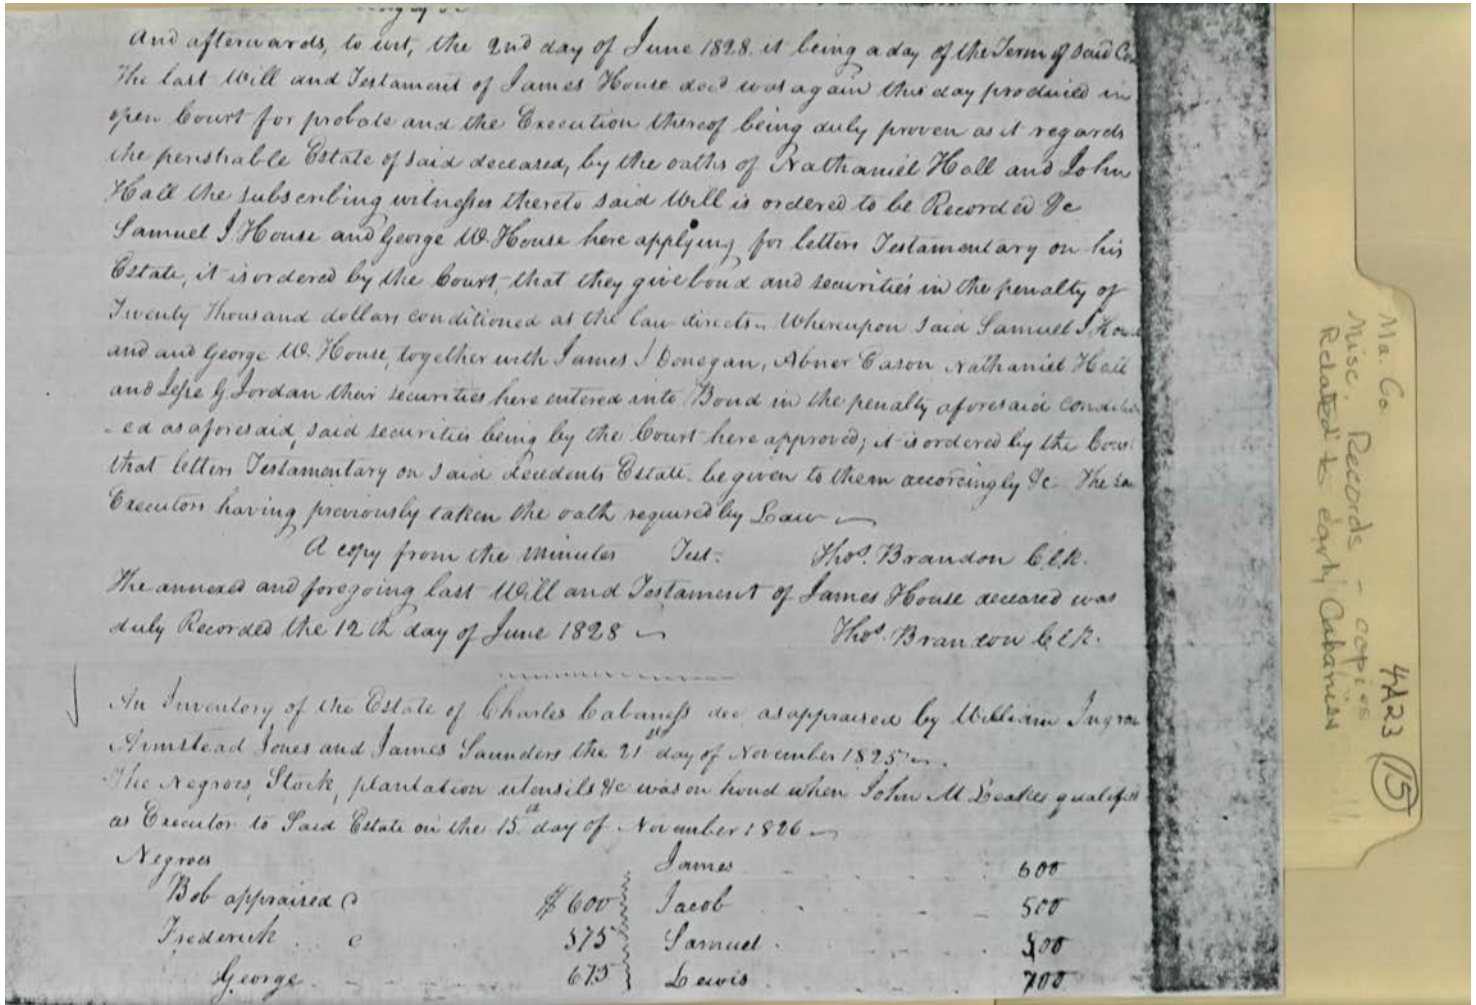 And afterwards, to wit, the 2nd day of June 1828. it being a day of the Term of said Co
The last Will and Testament of James House decd was again this day produced in
open Court for probate and the Execution thereof being duly proven as it regards
the perishable Estate of said deceased, by the oaths of Nathaniel Hall and John
Hall the subscribing witnesses thereto said Will is ordered to be Recorded &c
Samuel J House and George W. House here applying for letters Testamentary on his
Estate, it is ordered by the Court, that they give bond and securities in the penalty of
Twenty Thousand dollars conditioned as the law directs. Whereupon said Samuel J Hou
and and George W. House, together with James J Donegan, Abner Eason Nathaniel Hall
and Jesse G Jordan their securities here entered into Bond in the penalty aforesaid condition
-ed as aforesaid, said securities being by the Court here approved; it is ordered by the Cour
that letters Testamentary on said decedents Estate be given to them accordingly &c The sa
Executors having previously taken the oath required by Law
A copy from the minutes Test. Thos. Brandon Clk.
The annexed and foregoing last Will and Testament of James House deceased was
duly Recorded the 12th day of June 1828 Thos. Brandon Clk.
An Inventory of the Estate of Charles Cabaness dec as appraised by William Ingra
Armstead Jones and James Saunders the 21st day of November 1825
The Negroes, Stock, plantation utensils &c was on hand when John M Leakes qualified
as Executor to Said Estate on the 15th day of November 1826
Negroes James 600
Bob appraised @ $600 Jacob 500
Frederick 575 Samuel
George 675 Lewis 700
Ma. Co.
Misc. Records - copies
Related to early Cabaniss
4A23 (15)